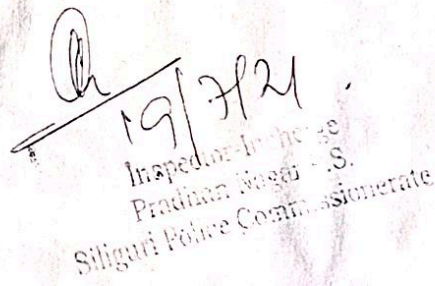 19/7/21
Inspector-In-charge
Pradhan Nagar P.S.
Siliguri Police Commissionerate